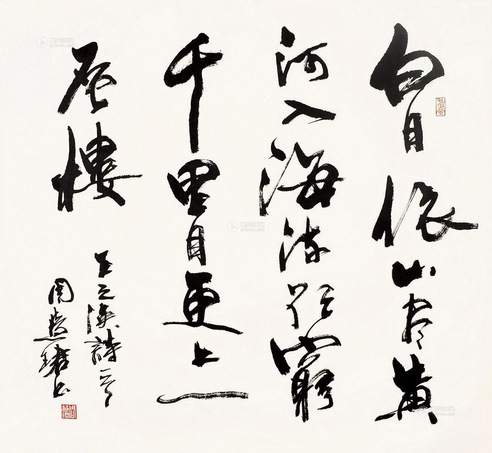 白日依山尽黄
河入海流欲窮
千里目更上一
层樓
王之涣詩一首
周慧珺书